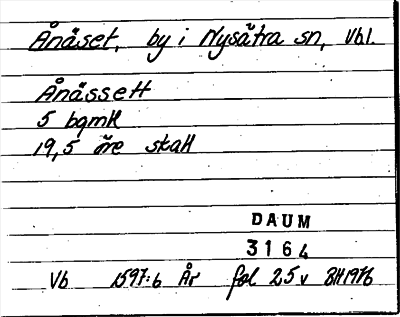 Ånäset, by i Nysätra sn, Vbl.
Ånässett
5 bgmk
19,5 öre skatt
DAUM
3164
Vb 1597:6 År fol 25v BH1976